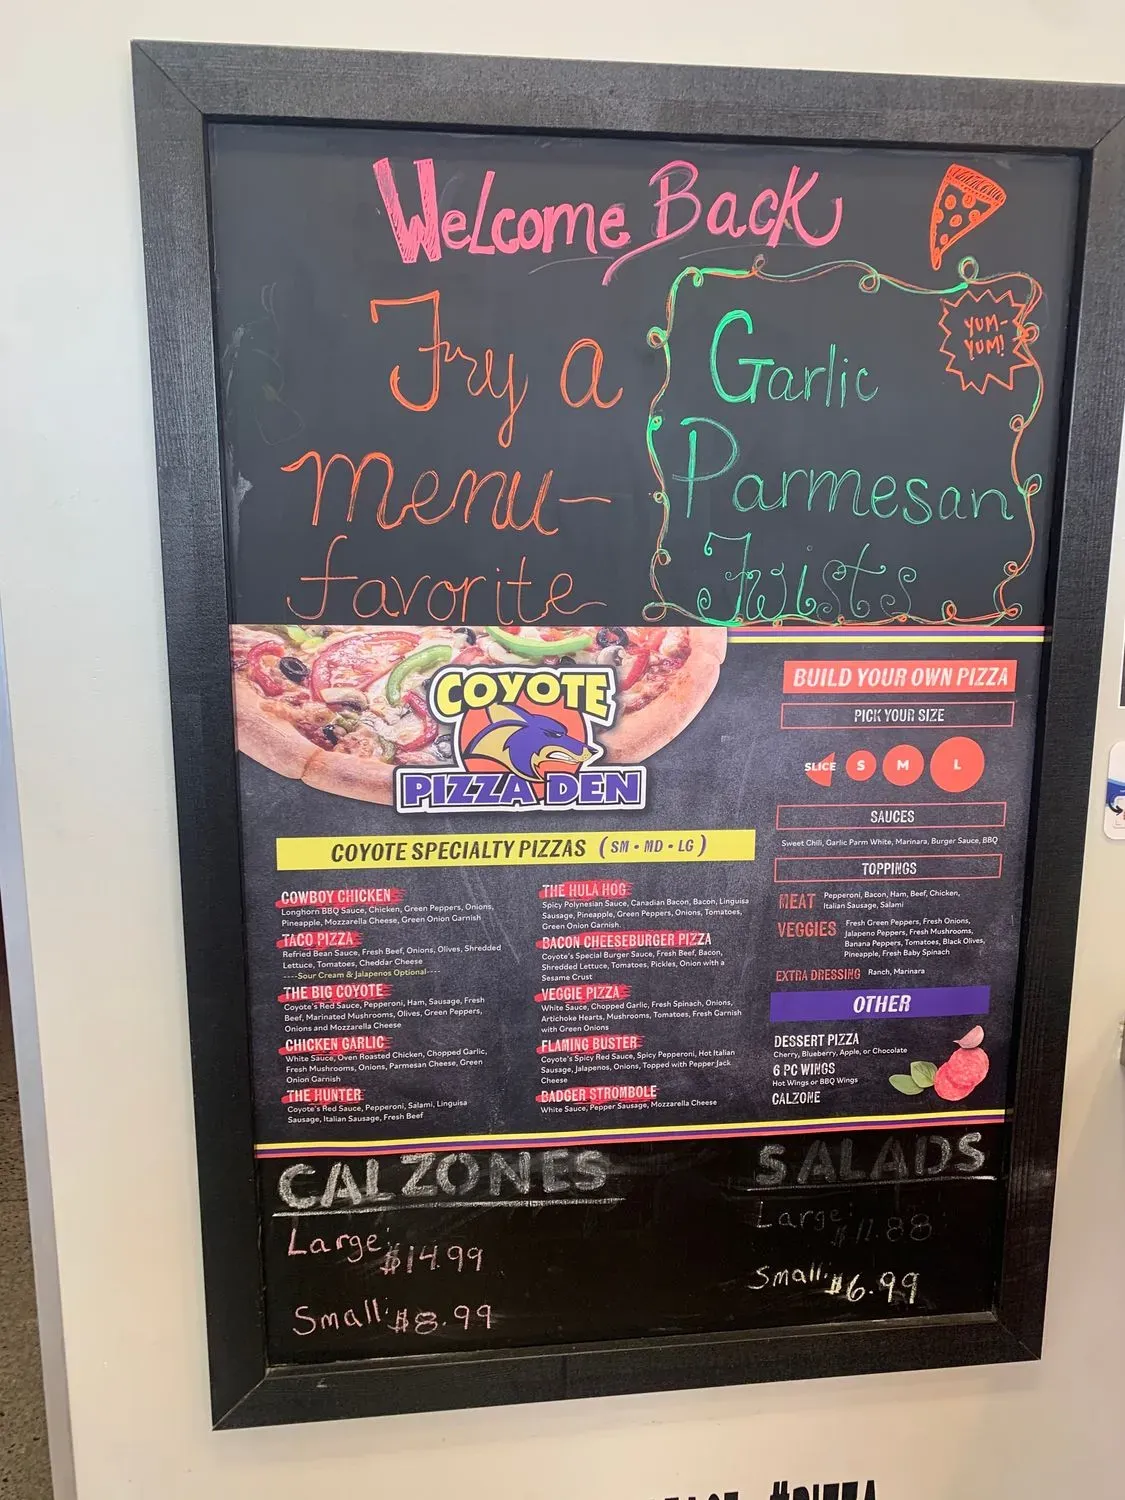 Welcome Back
Try a
menu-
favorite
YUM-
YUM!
Garlic
Parmesan
Twists
COYOTE
PIZZA DEN
COYOTE SPECIALTY PIZZAS (SM • MD • LG)
COWBOY CHICKEN
Longhorn BBQ Sauce, Chicken, Green Peppers, Onions,
Pineapple, Mozzarella Cheese, Green Onion Garnish
TACO PIZZA
Refried Bean Sauce, Fresh Beef, Onions, Olives, Shredded
Lettuce, Tomatoes, Cheddar Cheese
----Sour Cream & Jalapenos Optional----
THE BIG COYOTE
Coyote's Red Sauce, Pepperoni, Ham, Sausage, Fresh
Beef, Marinated Mushrooms, Olives, Green Peppers,
Onions and Mozzarella Cheese
CHICKEN GARLIC
White Sauce, Oven Roasted Chicken, Chopped Garlic,
Fresh Mushrooms, Onions, Parmesan Cheese, Green
Onion Garnish
THE HUNTER
Coyote's Red Sauce, Pepperoni, Salami, Linguisa
Sausage, Italian Sausage, Fresh Beef
THE HULA HOG
Spicy Polynesian Sauce, Canadian Bacon, Bacon, Linguisa
Sausage, Pineapple, Green Peppers, Onions, Tomatoes,
Green Onion Garnish.
BACON CHEESEBURGER PIZZA
Coyote's Special Burger Sauce, Fresh Beef, Bacon,
Shredded Lettuce, Tomatoes, Pickles, Onion with a
Sesame Crust
VEGGIE PIZZA
White Sauce, Chopped Garlic, Fresh Spinach, Onions,
Artichoke Hearts, Mushrooms, Tomatoes, Fresh Garnish
with Green Onions
FLAMING BUSTER
Coyote's Spicy Red Sauce, Spicy Pepperoni, Hot Italian
Sausage, Jalapenos, Onions, Topped with Pepper Jack
Cheese
BADGER STROMBOLE
White Sauce, Pepper Sausage, Mozzarella Cheese
BUILD YOUR OWN PIZZA
PICK YOUR SIZE
SLICE S M L
SAUCES
Sweet Chili, Garlic Parm White, Marinara, Burger Sauce, BBQ
TOPPINGS
MEAT Pepperoni, Bacon, Ham, Beef, Chicken,
Italian Sausage, Salami
VEGGIES Fresh Green Peppers, Fresh Onions,
Jalapeno Peppers, Fresh Mushrooms,
Banana Peppers, Tomatoes, Black Olives,
Pineapple, Fresh Baby Spinach
EXTRA DRESSING Ranch, Marinara
OTHER
DESSERT PIZZA
Cherry, Blueberry, Apple, or Chocolate
6 PC WINGS
Hot Wings or BBQ Wings
CALZONE
CALZONES
Large: $14.99
Small: $8.99
SALADS
Large: $11.88
Small: $6.99
#PIZZA